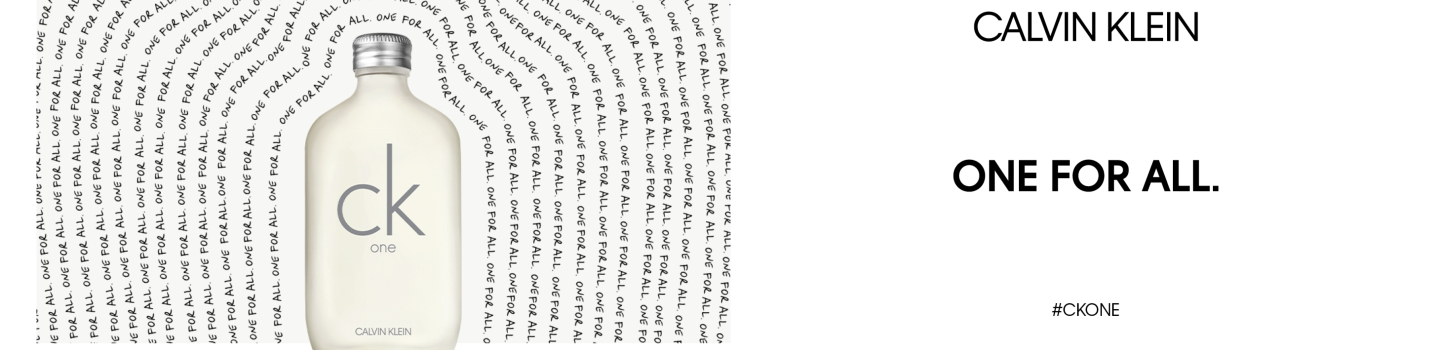 ONE FOR ALL. ONE FOR ALL. ONE FOR ALL. ONE FOR ALL.
ck
one
CALVIN KLEIN
CALVIN KLEIN
ONE FOR ALL.
#CKONE